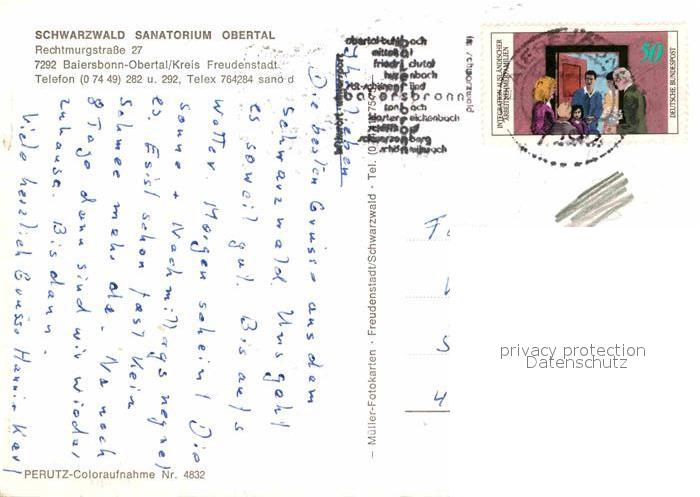 SCHWARZWALD SANATORIUM OBERTAL
Rechtmurgstraße 27
7292 Baiersbonn-Obertal/Kreis Freudenstadt
Telefon (0 74 49) 282 u. 292, Telex 764284 sano d
Ihr Lieben
Die besten Grüsse aus dem
Schwarzwald. Uns geht
es soweit gut. Bis aufs
Wetter. Morgen scheint Die
Sonne + Nachmittags regnet
es. Es ist schon fast kein
Schnee mehr da. Na noch
8 Tage dann sind wir wieder
zuhause. Bis dann.
Viele herzlich Grüsse Hanni + Karl
PERUTZ-Coloraufnahme Nr. 4832
— Müller-Fotokarten · Freudenstadt/Schwarzwald · Tel.
obertal-buhlbach
mitteltal
friedrichstal
baiersbronn
tonbach
klosterreichenbach
schwarzenberg
schönmünzach
im schwarzwald
INTEGRATION AUSLÄNDISCHER
ARBEITNEHMERFAMILIEN
50
DEUTSCHE BUNDESPOST
privacy protection
Datenschutz